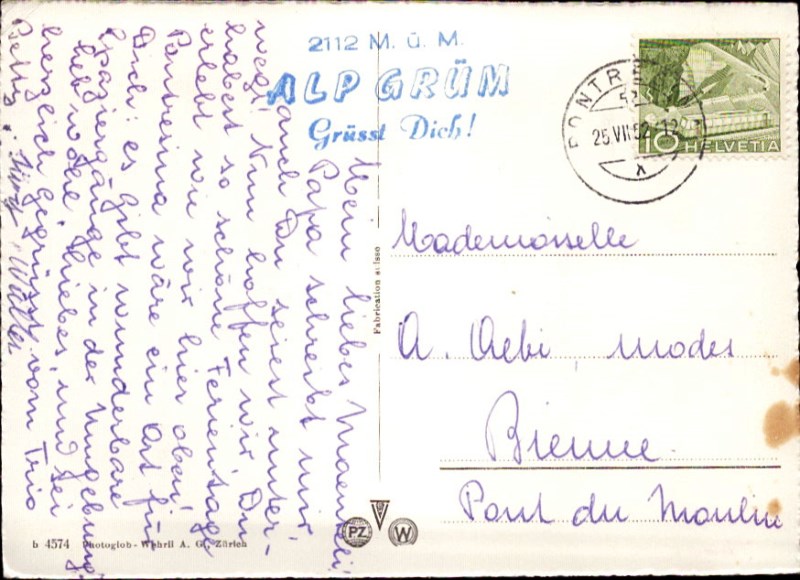 2112 M. ü. M.
ALP GRÜM
Grüsst Dich!
PONTR
25.VII.52-12
10 HELVETIA
Mein liebes
Papa schreibt mir
auch Du seiest unter-
wegs! Nun hoffen wir Du
habest so schöne Ferientage
erlebt wie wir hier oben!
Pontresina wäre ein Ort für
Dich: es gibt wunderbare
Spaziergänge in der Umgebung.
Leb wohl Liebes, und sei
herzlich gegrüsst vom Trio
Betty,
Mademoiselle
A. Aebi modes
Bienne.
Pont du Moulin
Fabrication suisse
PZ
W
b 4574 Photoglob-Wehrli A. G., Zürich